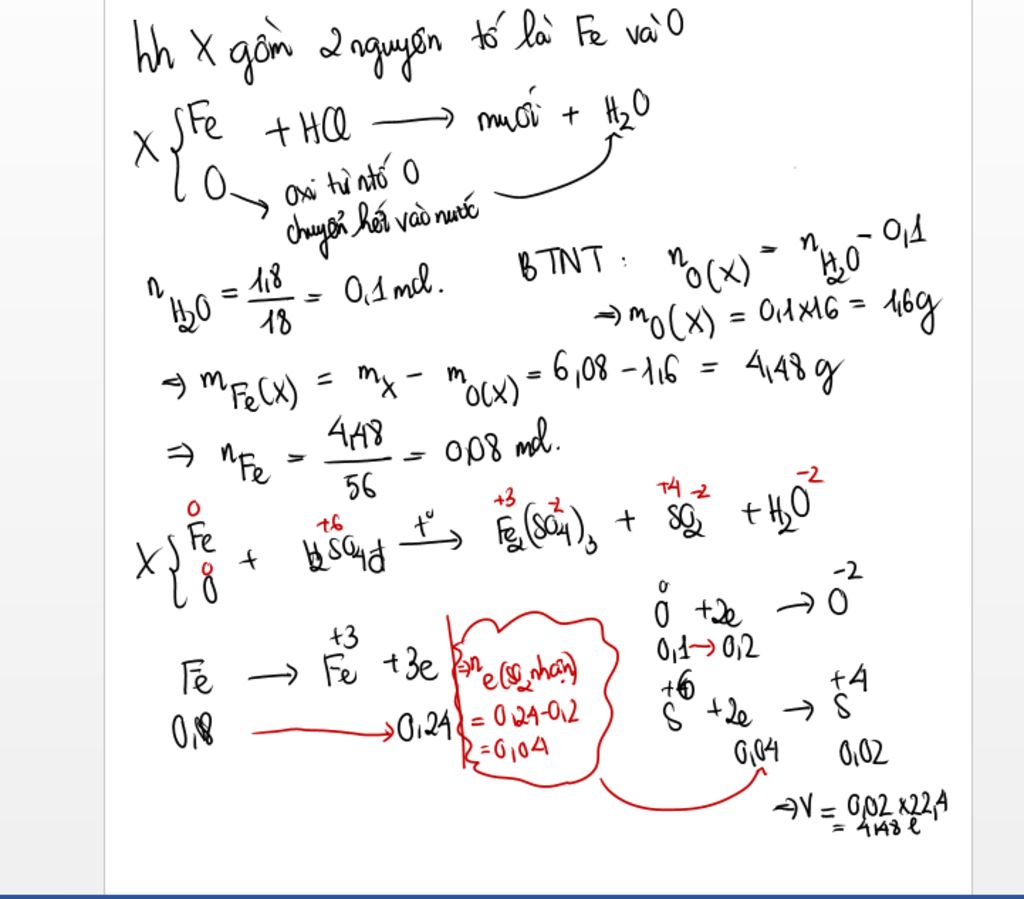 hh X gồm 2 nguyên tố là Fe và O
X { Fe + HCl → muối + H2O
O → oxi từ ntố O
chuyển hết vào nước
nH2O = 1,8/18 = 0,1 mol.
BTNT: nO(X) = nH2O - 0,1
⇒ mO(X) = 0,1x16 = 1,6g
⇒ mFe(X) = mX - mO(X) = 6,08 - 1,6 = 4,48 g
⇒ nFe = 4,48/56 = 0,08 mol.
0 +6 +3 -2 +4 -2 -2
X { Fe + H2SO4đ t° → Fe2(SO4)3 + SO2 + H2O
0
O
0 -2
O +2e → O
0,1 → 0,2
+3
Fe → Fe +3e
0,8 → 0,24
⇒ ne(SO2 nhận)
= 0,24-0,2
= 0,04
+6 +4
S +2e → S
0,04 0,02
⇒ V = 0,02 x22,4
= 4,48 l